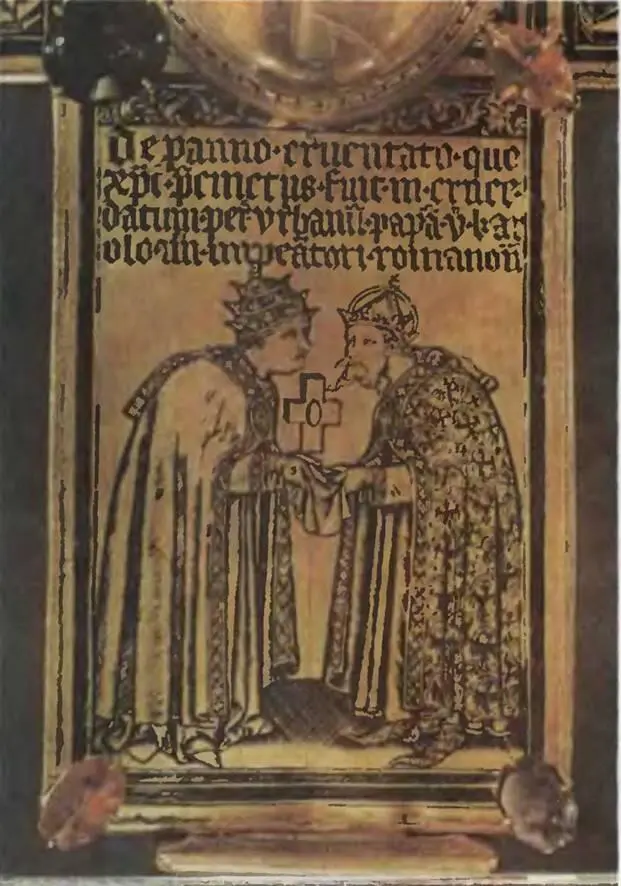 de panno · cruentato · quo
xp̄c · p̄cinctus · fuit · in · cruce ·
datum · per · vrbanū · papā · v̄ · kar
olo · iiii · imꝑatori · romanoꝝ